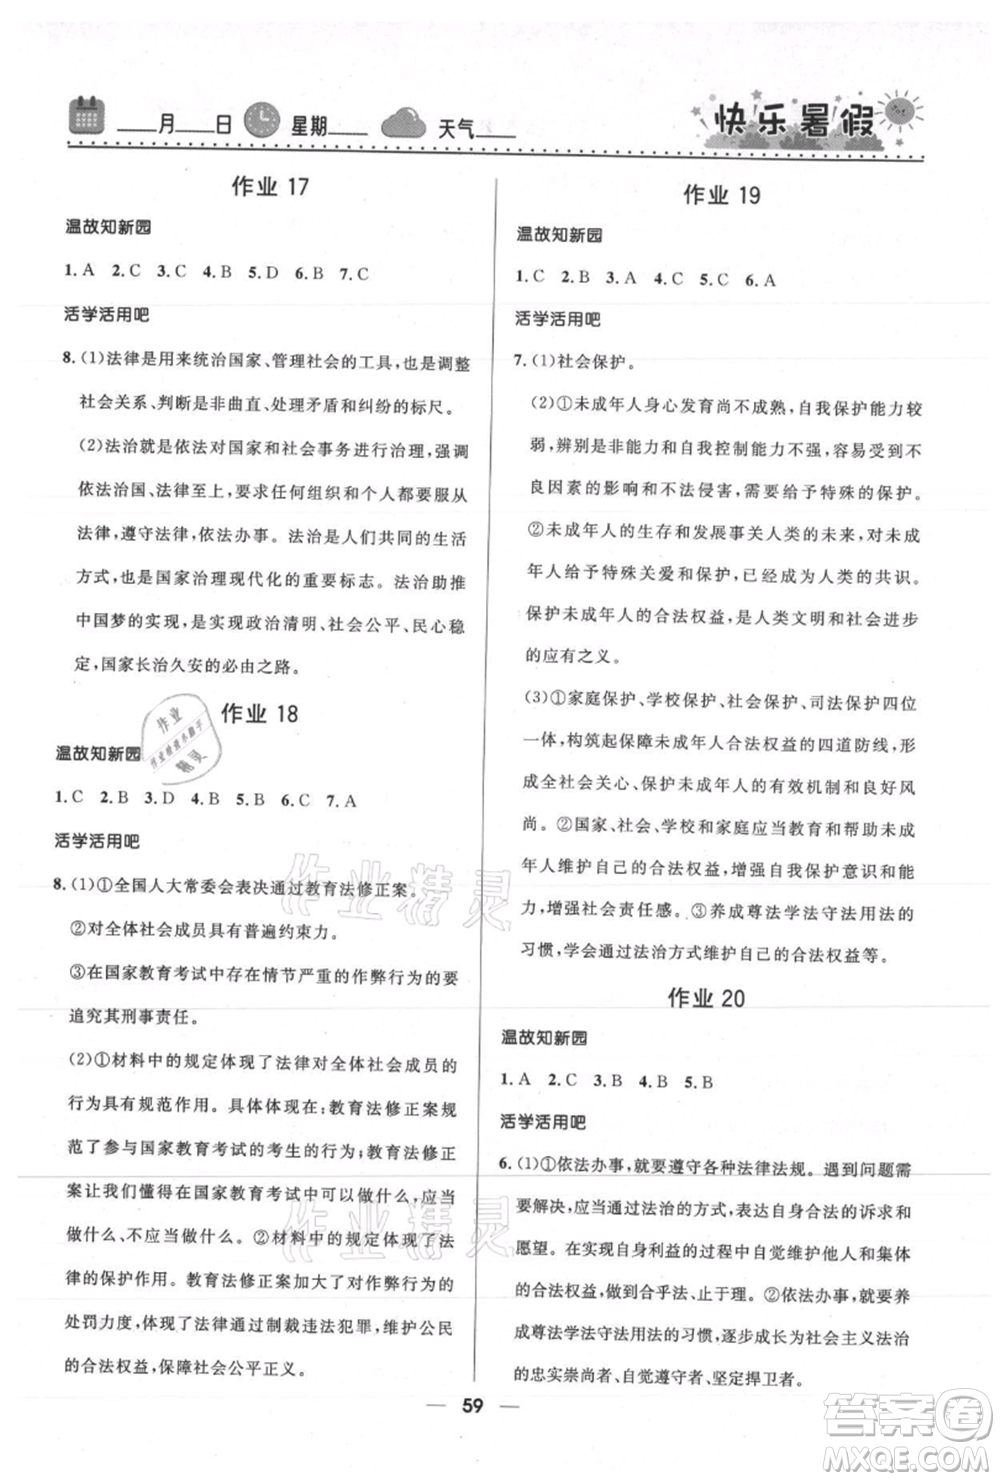 ____月____日 星期____ 天气____
快乐暑假
作业 17
温故知新园
1. A 2. C 3. C 4. B 5. D 6. B 7. C
活学活用吧
8. (1)法律是用来统治国家、管理社会的工具，也是调整
社会关系、判断是非曲直、处理矛盾和纠纷的标尺。
(2)法治就是依法对国家和社会事务进行治理，强调
依法治国、法律至上，要求任何组织和个人都要服从
法律，遵守法律，依法办事。法治是人们共同的生活
方式，也是国家治理现代化的重要标志。法治助推
中国梦的实现，是实现政治清明、社会公平、民心稳
定，国家长治久安的必由之路。
作业 18
温故知新园
1. C 2. B 3. D 4. B 5. B 6. C 7. A
活学活用吧
8. (1)①全国人大常委会表决通过教育法修正案。
②对全体社会成员具有普遍约束力。
③在国家教育考试中存在情节严重的作弊行为的要
追究其刑事责任。
(2)①材料中的规定体现了法律对全体社会成员的
行为具有规范作用。具体体现在：教育法修正案规
范了参与国家教育考试的考生的行为；教育法修正
案让我们懂得在国家教育考试中应当做什么，应当
做什么、不应当做什么。②材料中的规定体现了法
律的保护作用。教育法修正案加大了对作弊行为的
处罚力度，体现了法律通过制裁违法犯罪，维护公民
的合法权益，保障社会公平正义。
作业 19
温故知新园
1. C 2. B 3. B 4. C 5. C 6. A
活学活用吧
7. (1)社会保护。
(2)①未成年人身心发育尚不成熟，自我保护能力较
弱，辨别是非能力和自我控制能力不强，容易受到不
良因素的影响和不法侵害，需要给予特殊的保护。
②未成年人的生存和发展事关人类的未来，对未成
年人给予特殊关爱和保护，已成为人类的共识。
保护未成年人的合法权益，是人类文明和社会进步
的应有之义。
(3)①家庭保护、学校保护、社会保护、司法保护四位
一体，构筑起保护未成年人合法权益的四道防线，形
成全社会关心、保护未成年人的有效机制和良好风
尚。②国家、社会、学校和家庭应当教育和帮助未成
年人维护自己的合法权益，增强自我保护意识和能
力，增强社会责任感。③养成尊法学法守法用法的
习惯，学会通过法治方式维护自己的合法权益等。
作业 20
温故知新园
1. A 2. C 3. B 4. B 5. B
活学活用吧
6. (1)①依法办事，就要遵守各种法律法规。遇到问题需
要解决，应当通过法治的方式，表达自身合法的诉求和
愿望。在实现自身利益的过程中自觉维护他人和集体
的合法权益，做到合乎法、止于理。②依法办事，就要养
成尊法学法守法用法的习惯，逐步成长为社会主义法治
的忠实崇尚者、自觉遵守者、坚定捍卫者。
59
作业精灵
作业精灵
答案圈
MXQE.COM